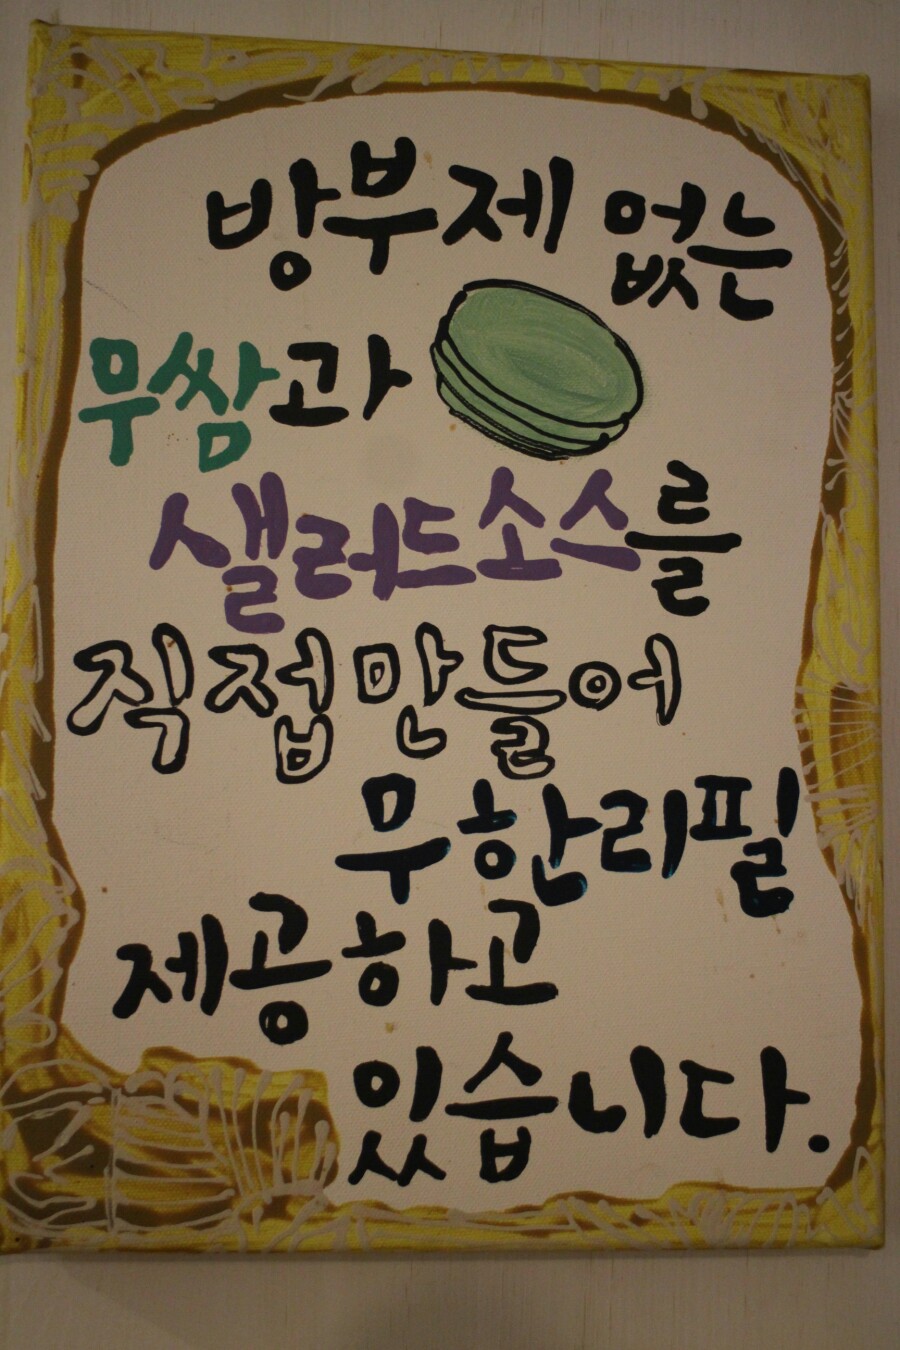 방부제 없는
무쌈과
샐러드소스를
직접만들어
무한리필
제공하고
있습니다.